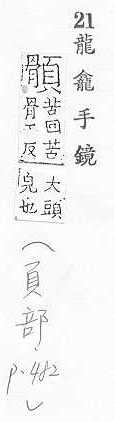 21 龍龕手鏡
顝 苦回苦骨二反 大頭皃也
(員部 p.482)